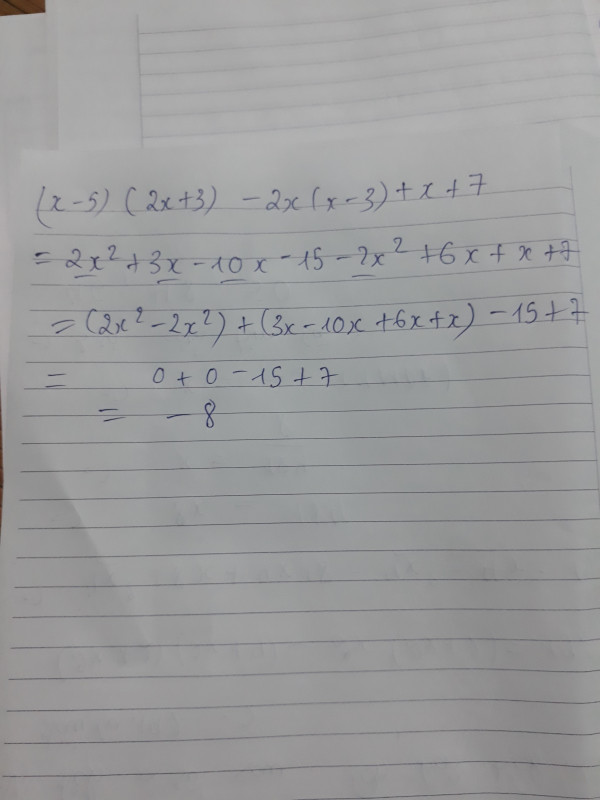 (x-5) (2x+3) - 2x(x-3)+x+7
= 2x²+3x-10x-15-2x²+6x+x+7
= (2x²-2x²)+(3x-10x+6x+x)-15+7
= 0+0-15+7
= -8